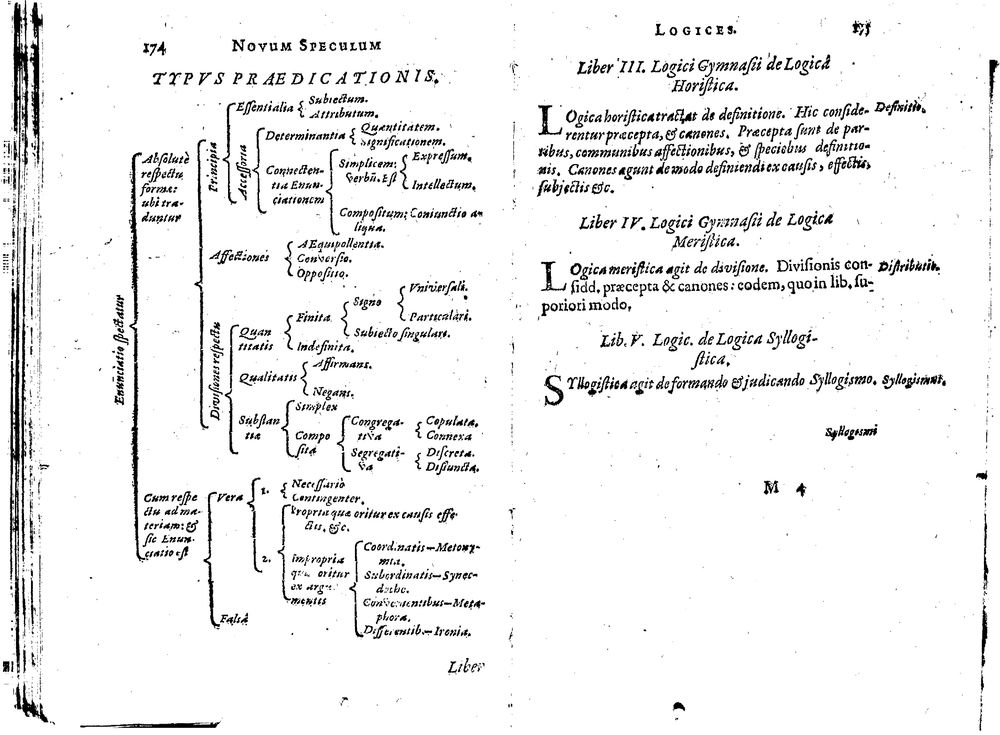 174 NOVUM SPECULUM
TYPVS PRÆDICATIONIS.
Enunciatio spectatur
Absolutè
respectu
formæ:
ubi tra-
duntur
Principia
Essentialia
Subiectum.
Attributum.
Accessoria
Determinantia
Quantitatem.
Significationem.
Connecten-
tia Enun-
ciationem
Simplicem;
Verbũ. Est
Expressum.
Intellectum.
Compositum; Coniunctio a-
liqua.
Affectiones
AEquipollentia.
Conversio.
Oppositio.
Divisiones respectu
Quan
titatis
Finita
Signo
Vniversali.
Particulari.
Subiecto singulari.
Indefinita.
Qualitatis
Affirmans.
Negans.
Substan
tiæ
Simplex
Compo
sita
Congrega-
tiva
Copulata.
Connexa
Segregati-
va
Discreta.
Disiuncta.
Cum respe
ctu ad ma-
teriam: &
sic Enun-
ciatio est
Vera
1.
Necessariò
Contingenter.
2.
Propria quæ oritur ex causis effe-
ctis, &c.
Impropria
quæ oritur
ex argu-
mentis
Coordinatis—Metony-
mia.
Subordinatis—Synec-
doche.
Convenientibus—Meta-
phora.
Differentib.—Ironia.
Falsa
Liber
LOGICES. 175
Liber III. Logici Gymnasii de Logicâ
Horisticâ.
LOgica horistica tractat de definitione. Hic conside- Definitio.
rentur præcepta, & canones. Præcepta sunt de par-
tibus, communibus affectionibus, & speciebus definitio-
nis. Canones agunt de modo definiendi ex causis, effectis,
subjectis &c.
Liber IV. Logici Gymnasii de Logica
Meristica.
LOgica meristica agit de divisione. Divisionis con- Distributio.
sidd. præcepta & canones: eodem, quo in lib. su-
poriori modo.
Lib. V. Logic. de Logica Syllogi-
stica.
SYllogistica agit de formando & judicando Syllogismo. Syllogismus.
Syllogismi
M 4